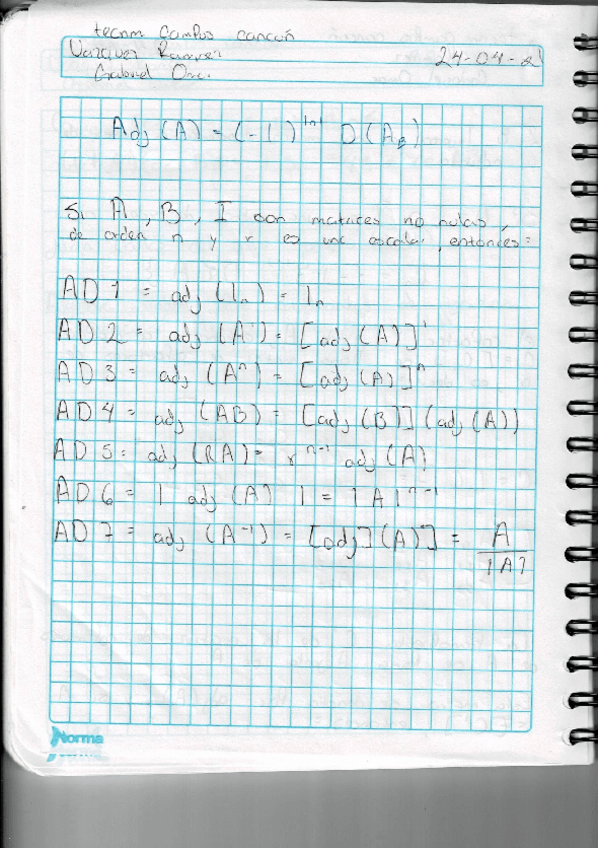 tecnm Campus cancún
Vazquez Ramirez
24-04-2
Gabriel Omc.
Adj (A) = (-1)^|n| D (A_B)
Si A , B , I son matrices no nulas ,
de orden n y r es una escalar, entonces:
AD 1 = adj (I_n) = I_n
AD 2 = adj (A') = [adj (A)]'
AD 3 = adj (A^n) = [adj (A)]^n
AD 4 = adj (AB) = [adj (B)] (adj (A))
AD 5 = adj (RA) = r^n-1 adj (A)
AD 6 = | adj (A) | = |A|^n-1
AD 7 = adj (A^-1) = [adj] (A)^-] = A / |A|
Norma